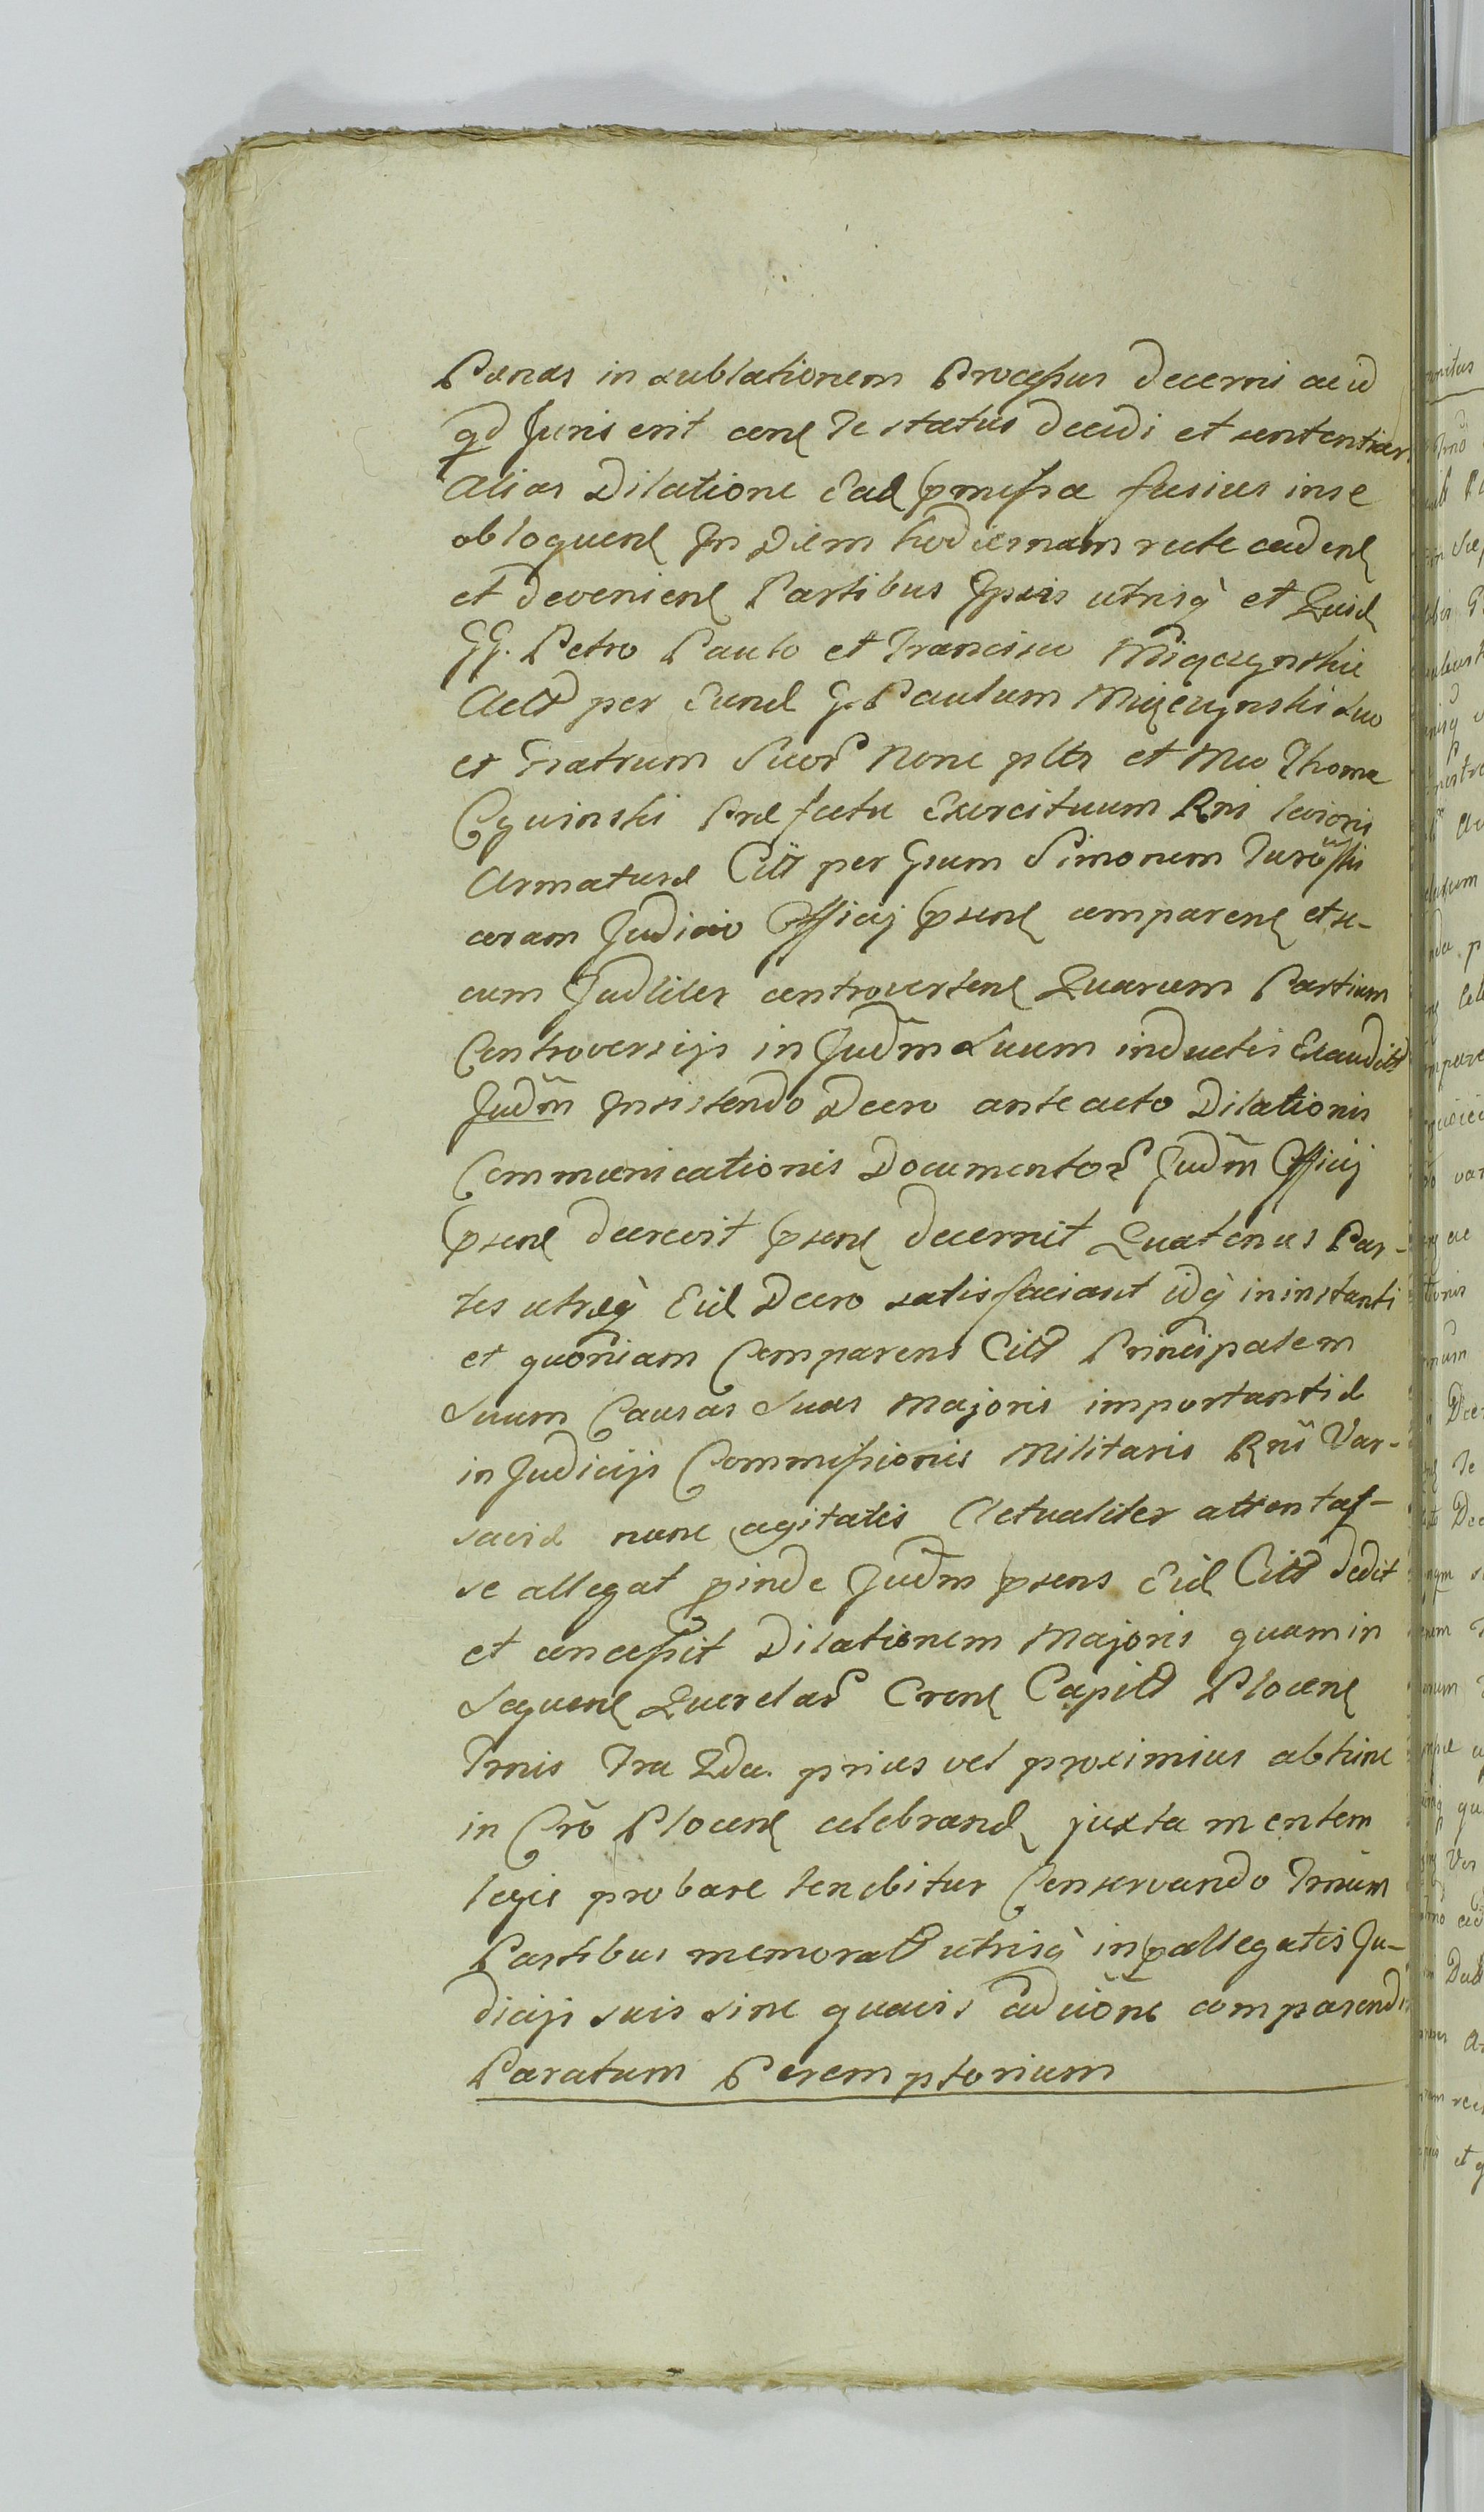 Pænas in sublationem Processus decerni ac id
qd Juris erit cene Te status decidi et sententiari
Alias Dilatione Ead pmissa fusius in se
obloquen In Diem hodiernam recte caden
et devenien Partibus Ipsis utrisq̀ et Quid
GG. Petro Paulo et Francisco Miączynskie
Act per Eund G. Paulum Miączynski suo
et Fratrum Suor None plr et Mco Thoma
Cywinski Præfectu Exercituum Rni levioris
Armaturæ Citt per Gsum Simonem Turowski
coram Judicio Officij psen comparen et se-
cum Judliter controverten Quarum Partium
Controversijs in Judm̃ Suum inductis Exaudit
Judm̃ Insistendo Decro anteacto Dilationis
Communicationis Documentor Judm̃ Officij
psen decrevit psen decernit Quatenus Par-
tes utræq̀ Eid Decro satisfaciant idq̀ in instanti
et quoniam Comparens Citt Principalem
Suum Causas Suas Majoris importantiæ
in Judicijs Commissionis Militaris Rni Var-
saviæ nunc agitatis Actualiter attentas-
se allegat pinde Judm̃ psens Eid Citt dedit
et concessit Dilationem Majoris quam in
Sequen Querelar Cren Capit Plocen
Trnis Fra 2da. prius vel proximius abhinc
in Cro Plocen celebrand juxta mentem
legis probare tenebitur Conservando Trnum
Partibus memorat utrisq̀ in pallegatis Ju-
dicijs suis sine quavis adcione comparendi
Paratum Peremptorium